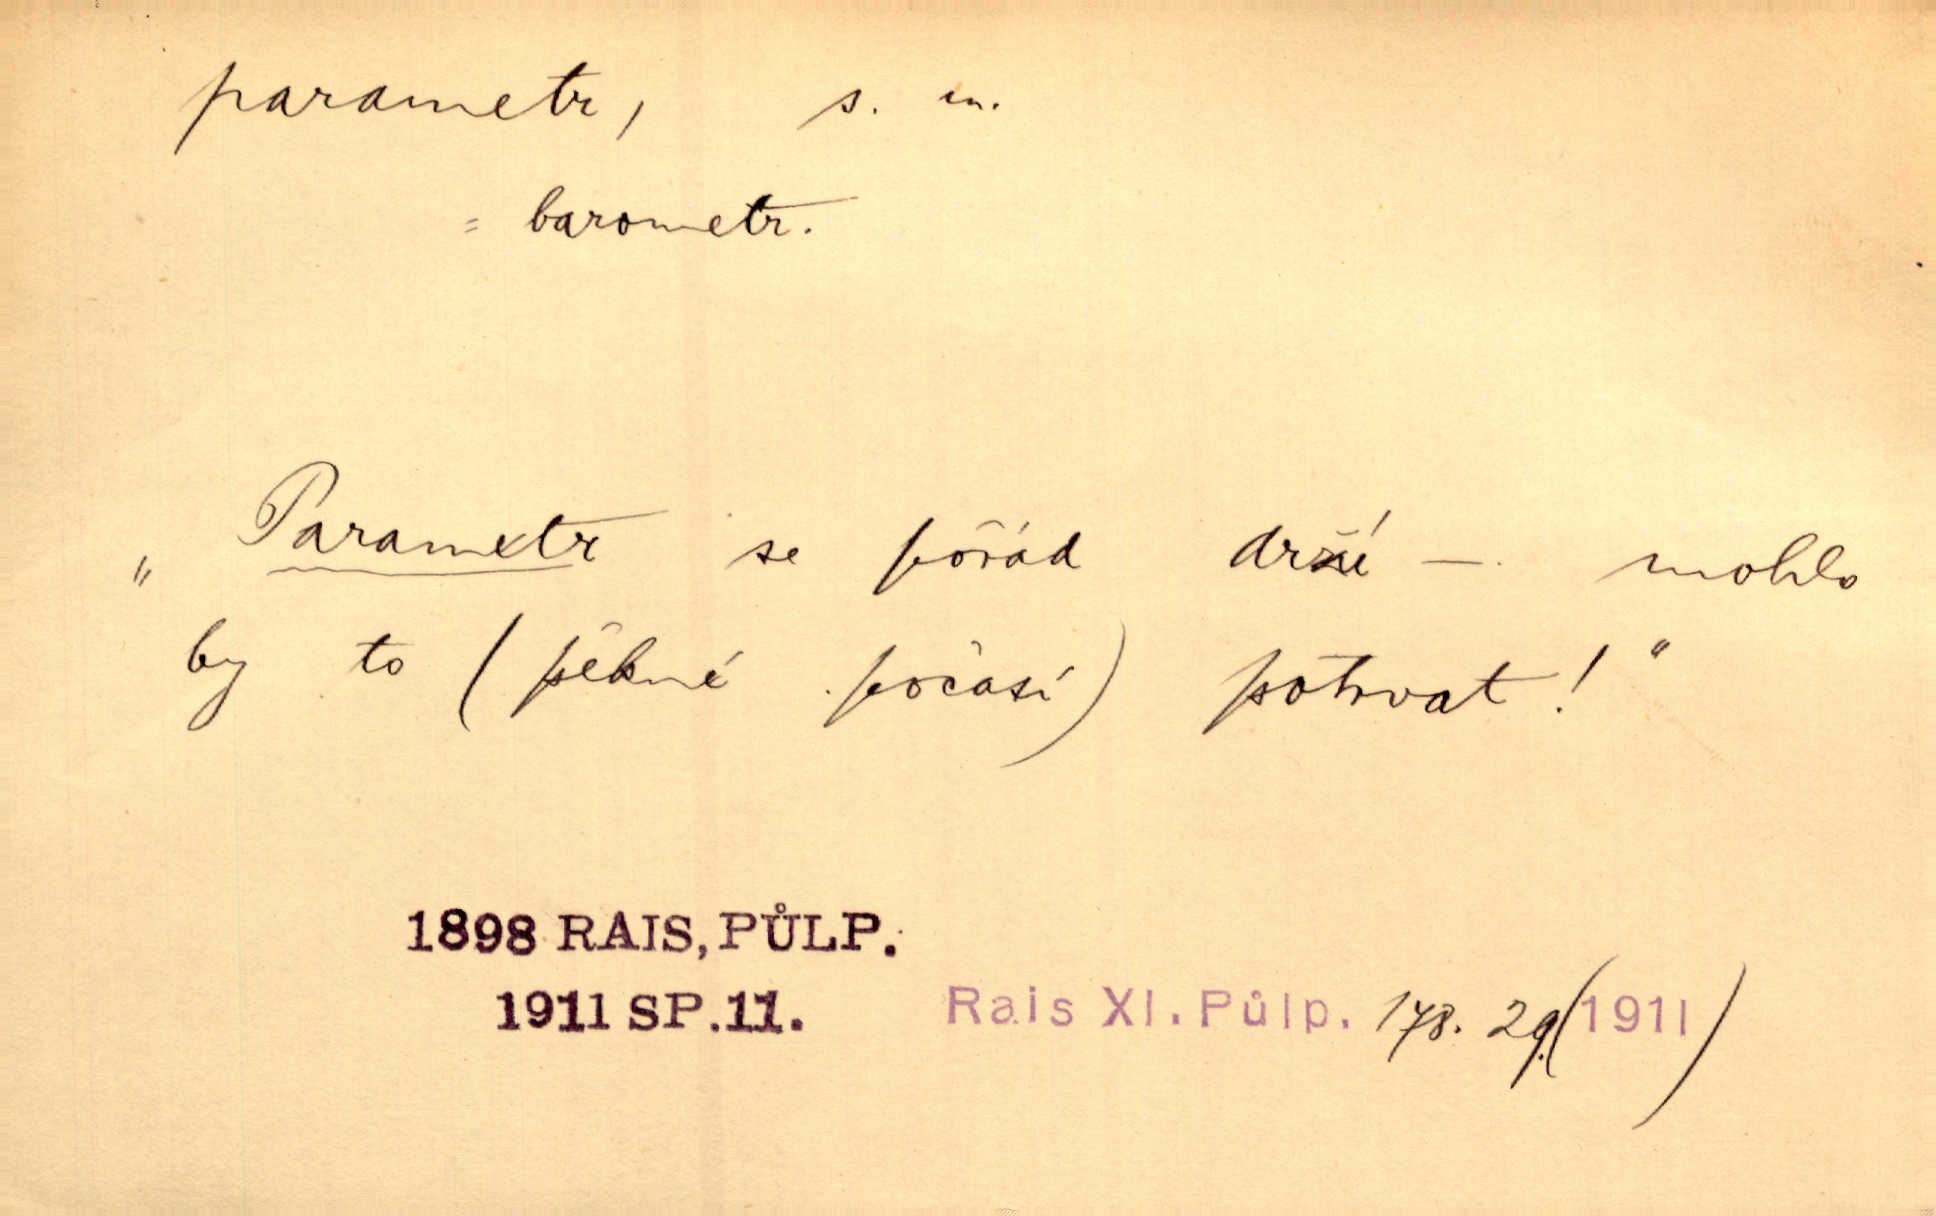 parametr, s. m.
= barometr.
„Parametr se pořád drží — mohlo
by to (pěkné počasí) potrvat!“
1898 RAIS, PŮLP.
1911 SP.11.
Rais XI. Půlp. 178. 29. (1911)